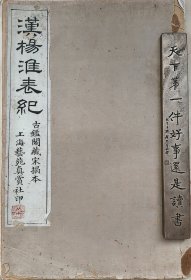 漢楊淮表紀
古鑑閣藏宋搨本
上海藝苑真賞社印
天下第一件好事還是讀書